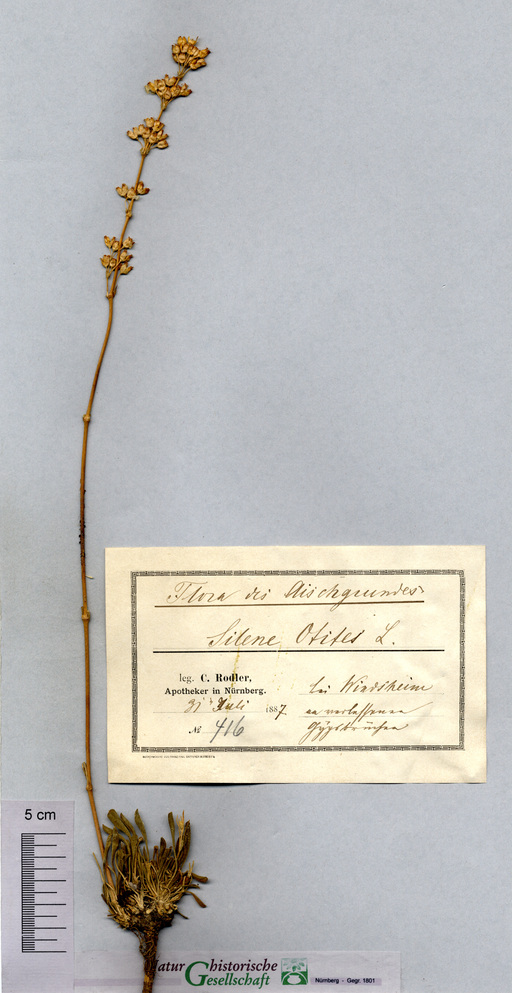 Flora des Aischgrundes
Silene Otites L.
leg. C. Rodler,
Apotheker in Nürnberg.
bei Windsheim
31 Juli 1887
an verlassenen
№ 416
Gypsbrüchen
5 cm
Naturhistorische
Gesellschaft
Nürnberg - Gegr. 1801